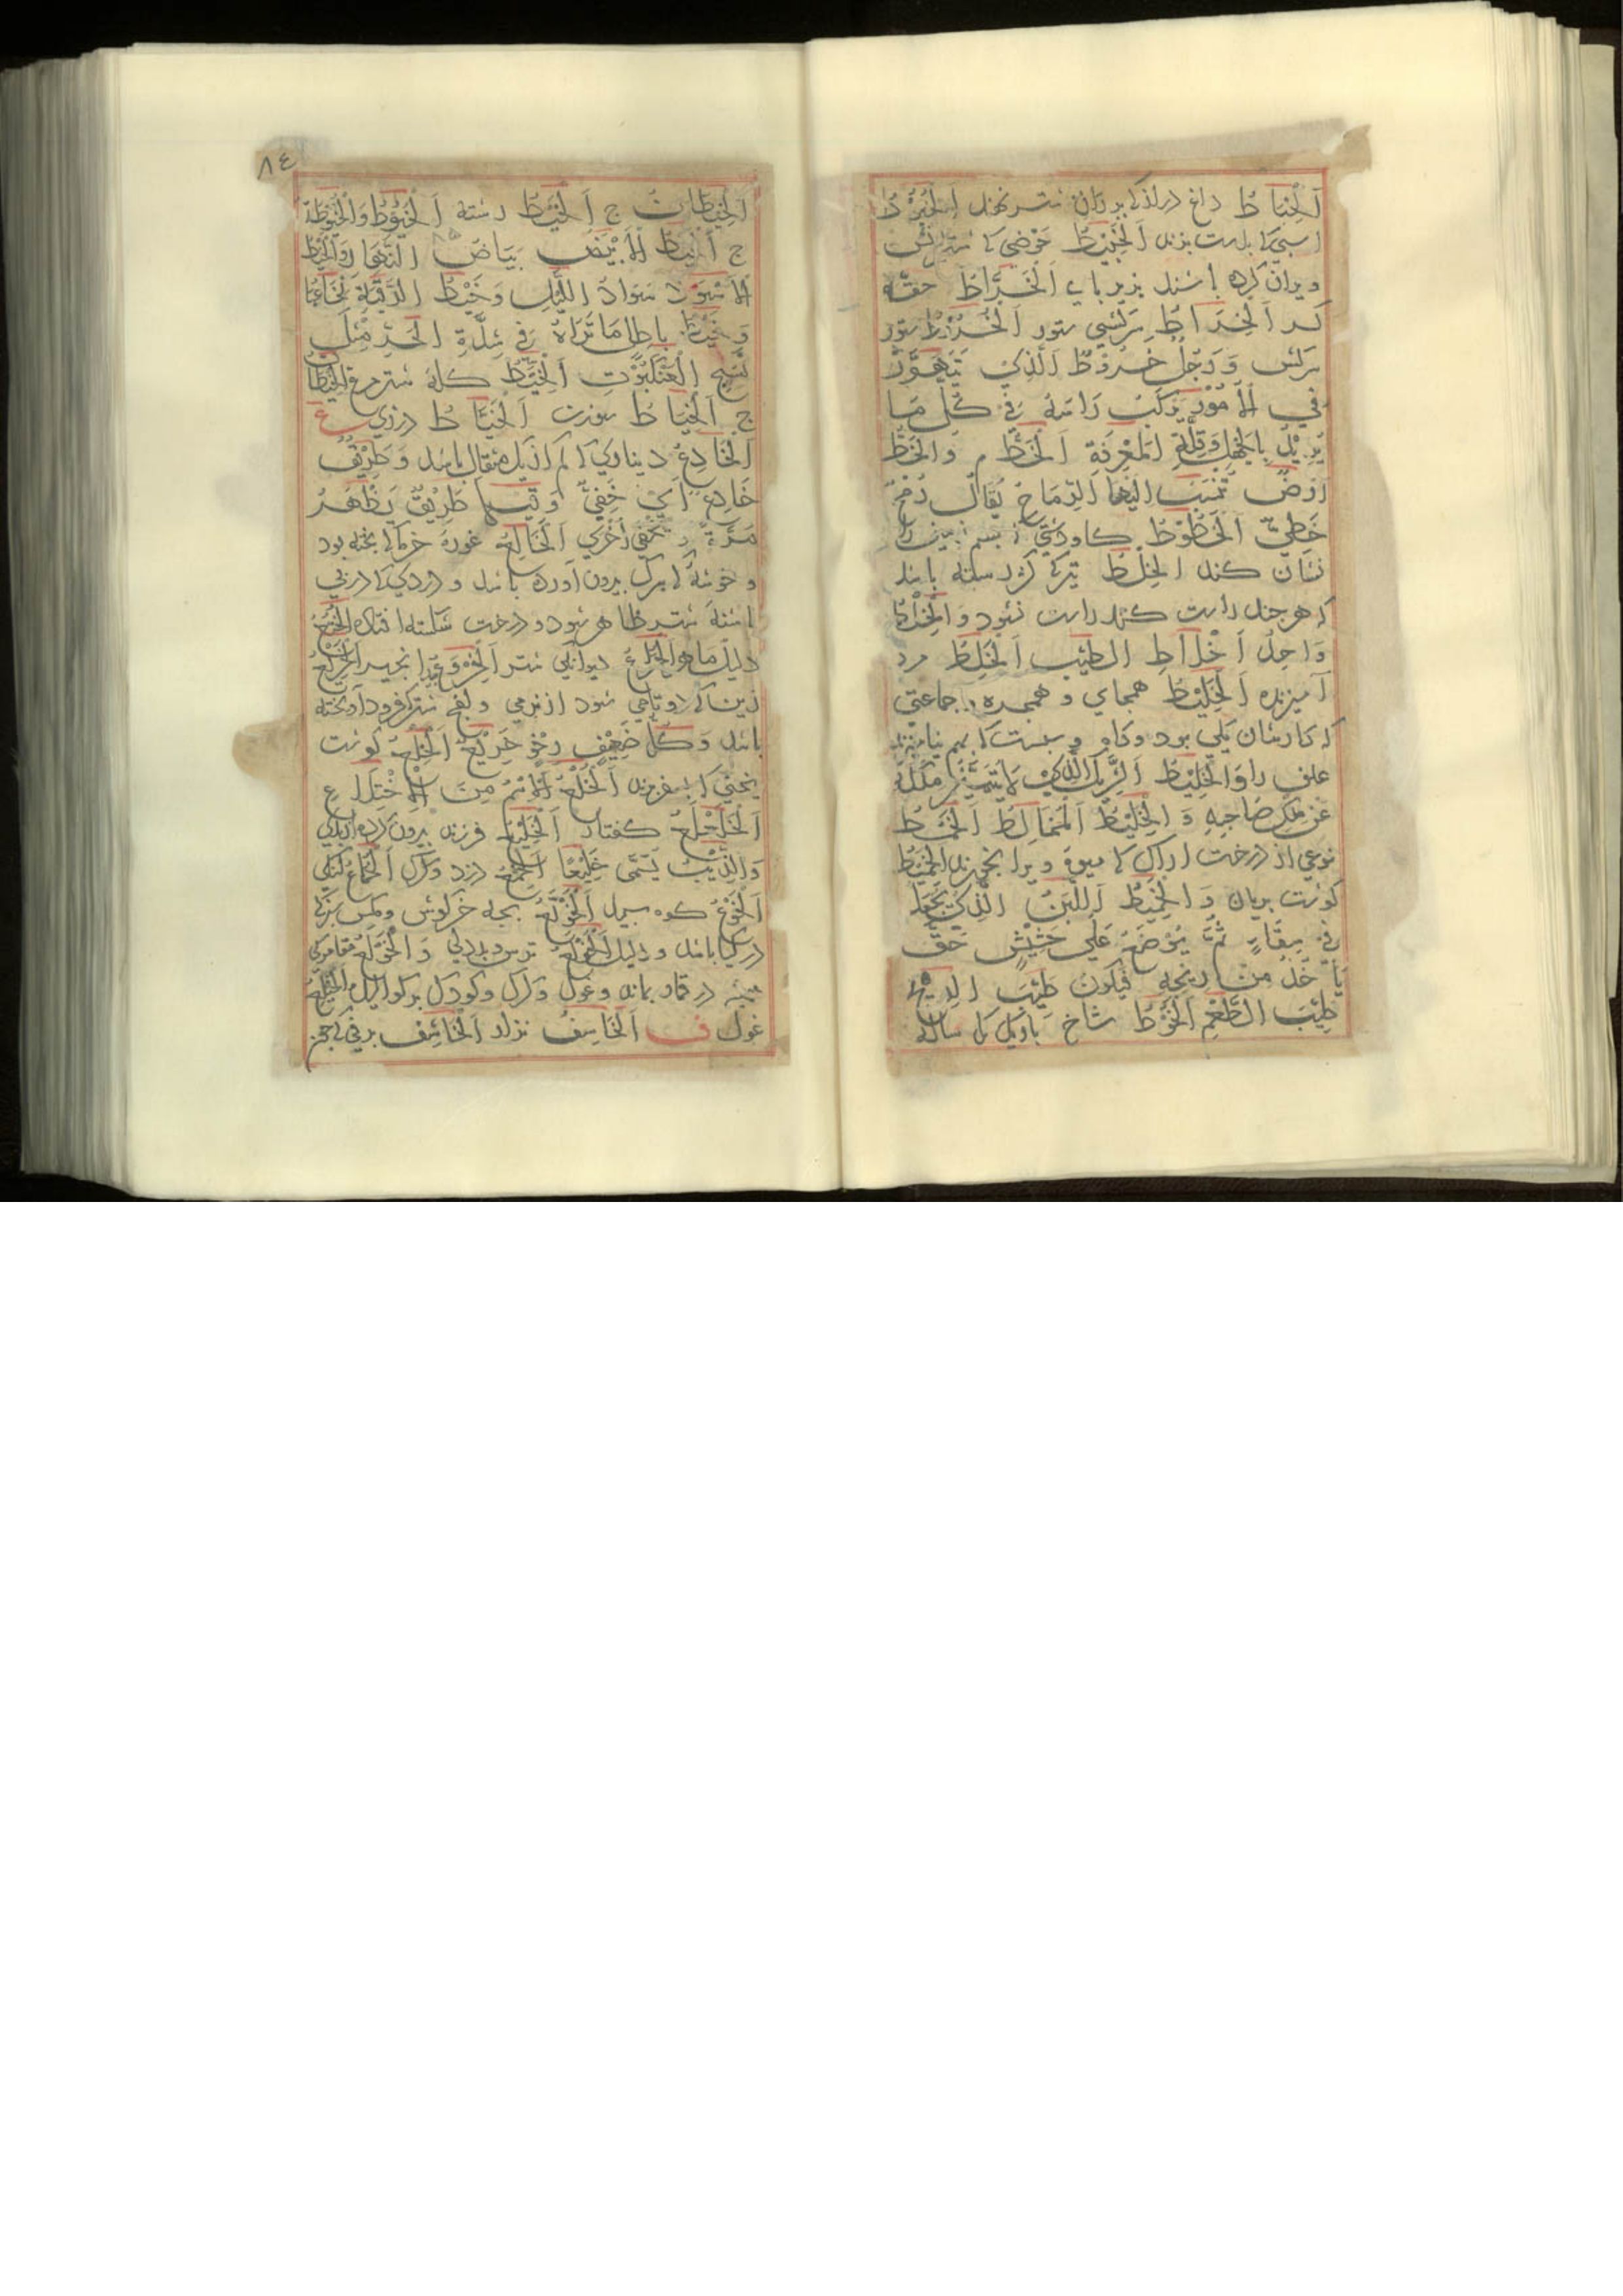 اَلْخِبَاطُ داغ دراز که بر ران شتر نهند اَلْخَبُوْطُ
اسبی که بدست بزند اَلْخَبِيْطُ حوضی که شترانش
ویران کرده باشند بزیر پای اَلْخَرَّاطُ حقه
کر اَلْخِرَاطُ سرکشی ستور اَلْخَرُوْطُ ستور
سرکش وَرَجُلٌ خَرُوْطٌ اَلَّذِيْ يَتَهَوَّرُ
فِي الْاُمُوْرِ يَرْكَبُ رَاسَهُ فِيْ كُلِّ مَا
يُرِيْدُ بِالْجَهْلِ وَقِلَّةِ الْمَعْرِفَةِ اَلْخَطُّ م وَالْخَطُّ
اَرْضٌ تُنْسَبُ اِلَيْهَا الرِّمَاحُ يُقَالُ رُمْحٌ
خَطِّيٌّ اَلْخَطُوْطُ گاو دشتی زمین را
نشان کند اَلْخِلْطُ تیر که کژ رسته باشد
که هر چند راست کنند راست نشود وَالْخِلْطُ
وَاحِدُ اَخْلَاطِ الطِّيْبِ اَلْخَلِطُ مرد
آمیزنده اَلْخَلِيْطُ همجای و جماعتی
که کارشان یکی بود وکاه و سبست که بهم بیامیزند
علف را وَالْخَلِيْطُ اَلشَّرِيْكُ الَّذِيْ لَا يَتَمَيَّزُ مِلْكُهُ
عَنْ مِلْكِ صَاحِبِهِ وَالْخَلِيْطُ اَلْمُخَالِطُ اَلْخَمْطُ
نوعی از درخت اراک که میوه ویرا بخورند اَلْخَمِيْطُ
گوشت بریان وَالْخَمِيْطُ اَللَّبَنُ الَّذِيْ يُجْعَلُ
فِيْ سِقَاءٍ ثُمَّ يُوْضَعُ عَلَى حَشِيْشٍ حَتَّى
يَأْخُذَ مِنْ رِيْحِهِ فَيَكُوْنَ طَيِّبَ الرِّيْحِ
طَيِّبَ الطَّعْمِ اَلْخُوْطُ شاخ باریک یک ساله
٨٤
اَلْخِيْطَانُ ج اَلْخَيْطُ رشته اَلْخُيُوْطُ وَالْخُيُوْطَةُ
ج اَلْخَيْطُ الْاَبْيَضُ بَيَاضُ النَّهَارِ وَالْخَيْطُ
الْاَسْوَدُ سَوَادُ اللَّيْلِ وَخَيْطُ الرَّقَبَةِ نُخَاعُهَا
وَخَيْطُ بَاطِلٍ مَا تَرَاهُ فِيْ شِدَّةِ الْحَرِّ مِثْلَ
نَسْجِ الْعَنْكَبُوْتِ اَلْخِيْطُ کله شترمرغ اَلْخِيْطَانُ
ج اَلْخِيَاطُ سوزن اَلْخَيَّاطُ درزی ع
اَلْخَادِعُ دیناری که کم از یک مثقال باشد وَطَرِيْقٌ
خَادِعٌ اَيْ خَفِيٌّ وَقِيْلَ طَرِيْقٌ يَظْهَرُ
مَرَّةً وَيَخْفَى اُخْرَى اَلْخَالِعُ غوره خرما که پخته بود
و خوشه که برگ بیرون آورده باشد و دردی که در پی
اشنه شتر ظاهر شود و درخت شکسته افتاده اَلْخُتَعُ
دلیل ماهر اَلْخُرَاعُ دیوانگی شتر اَلْخِرْوَعُ بید انجیر اَلْخَرِيْعُ
زنی که دوتاهی شود از نرمی و لفج شتر که فرود آویخته
باشد وَكُلُّ ضَعِيْفٍ رِخْوٍ خَرِيْعٌ اَلْخَلْعُ گوشت
پختنی که بسفر برند اَلْخُلْعُ اَلْاِسْمُ مِنَ الْاِخْتِلَاعِ
اَلْخَلَعْلَعُ کفتار اَلْخَلِيْعُ فرزند بیرون کرده از پدر
وَالذِّيْبُ يُسَمَّى خَلِيْعًا اَلْخِمْعُ دزد و گرگ اَلْخُمَاعُ لنگی
اَلْخَوْعُ کوه سپید اَلْخَوْتَعُ بچه خرگوش و مگس سبز که
در گیا باشد و دلیل اَلْخَوْلَعُ ترس و بددلی وَالْخَوْلَعُ مقامری که
همیشه در قمار بماند وغول وگرگ وکودک اَلْخَيْلَعُ
غول ف اَلْخَاسِفُ نزار اَلْخَاشِفُ برفی که